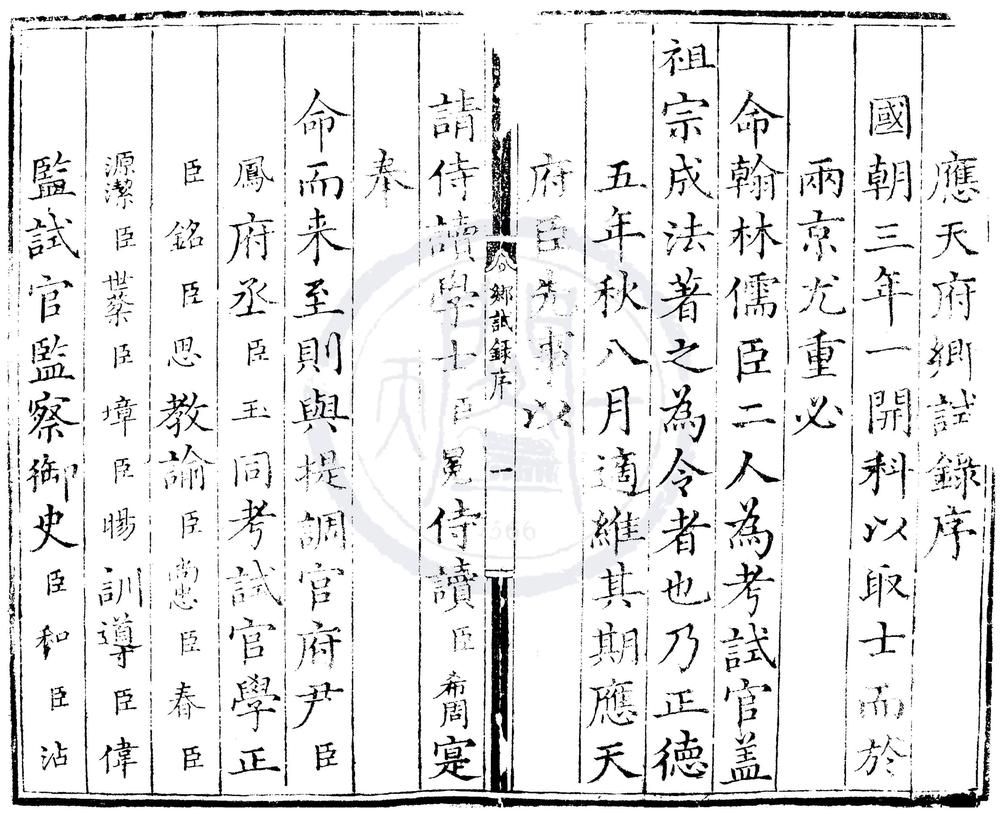 應天府鄉試錄序
國朝三年一開科以取士而於
兩京尤重必
命翰林儒臣二人為考試官盖
祖宗成法著之為令者也乃正德
五年秋八月適維其期應天
府臣先事以
鄉試錄序
一
請侍讀學士臣冕侍讀臣希周寔
奉
命而来至則與提調官府尹臣
鳳府丞臣玉同考試官學正
臣銘臣思教諭臣尚忠臣春臣
源潔臣世棻臣壿臣暘訓導臣偉
監試官監察御史臣和臣沾